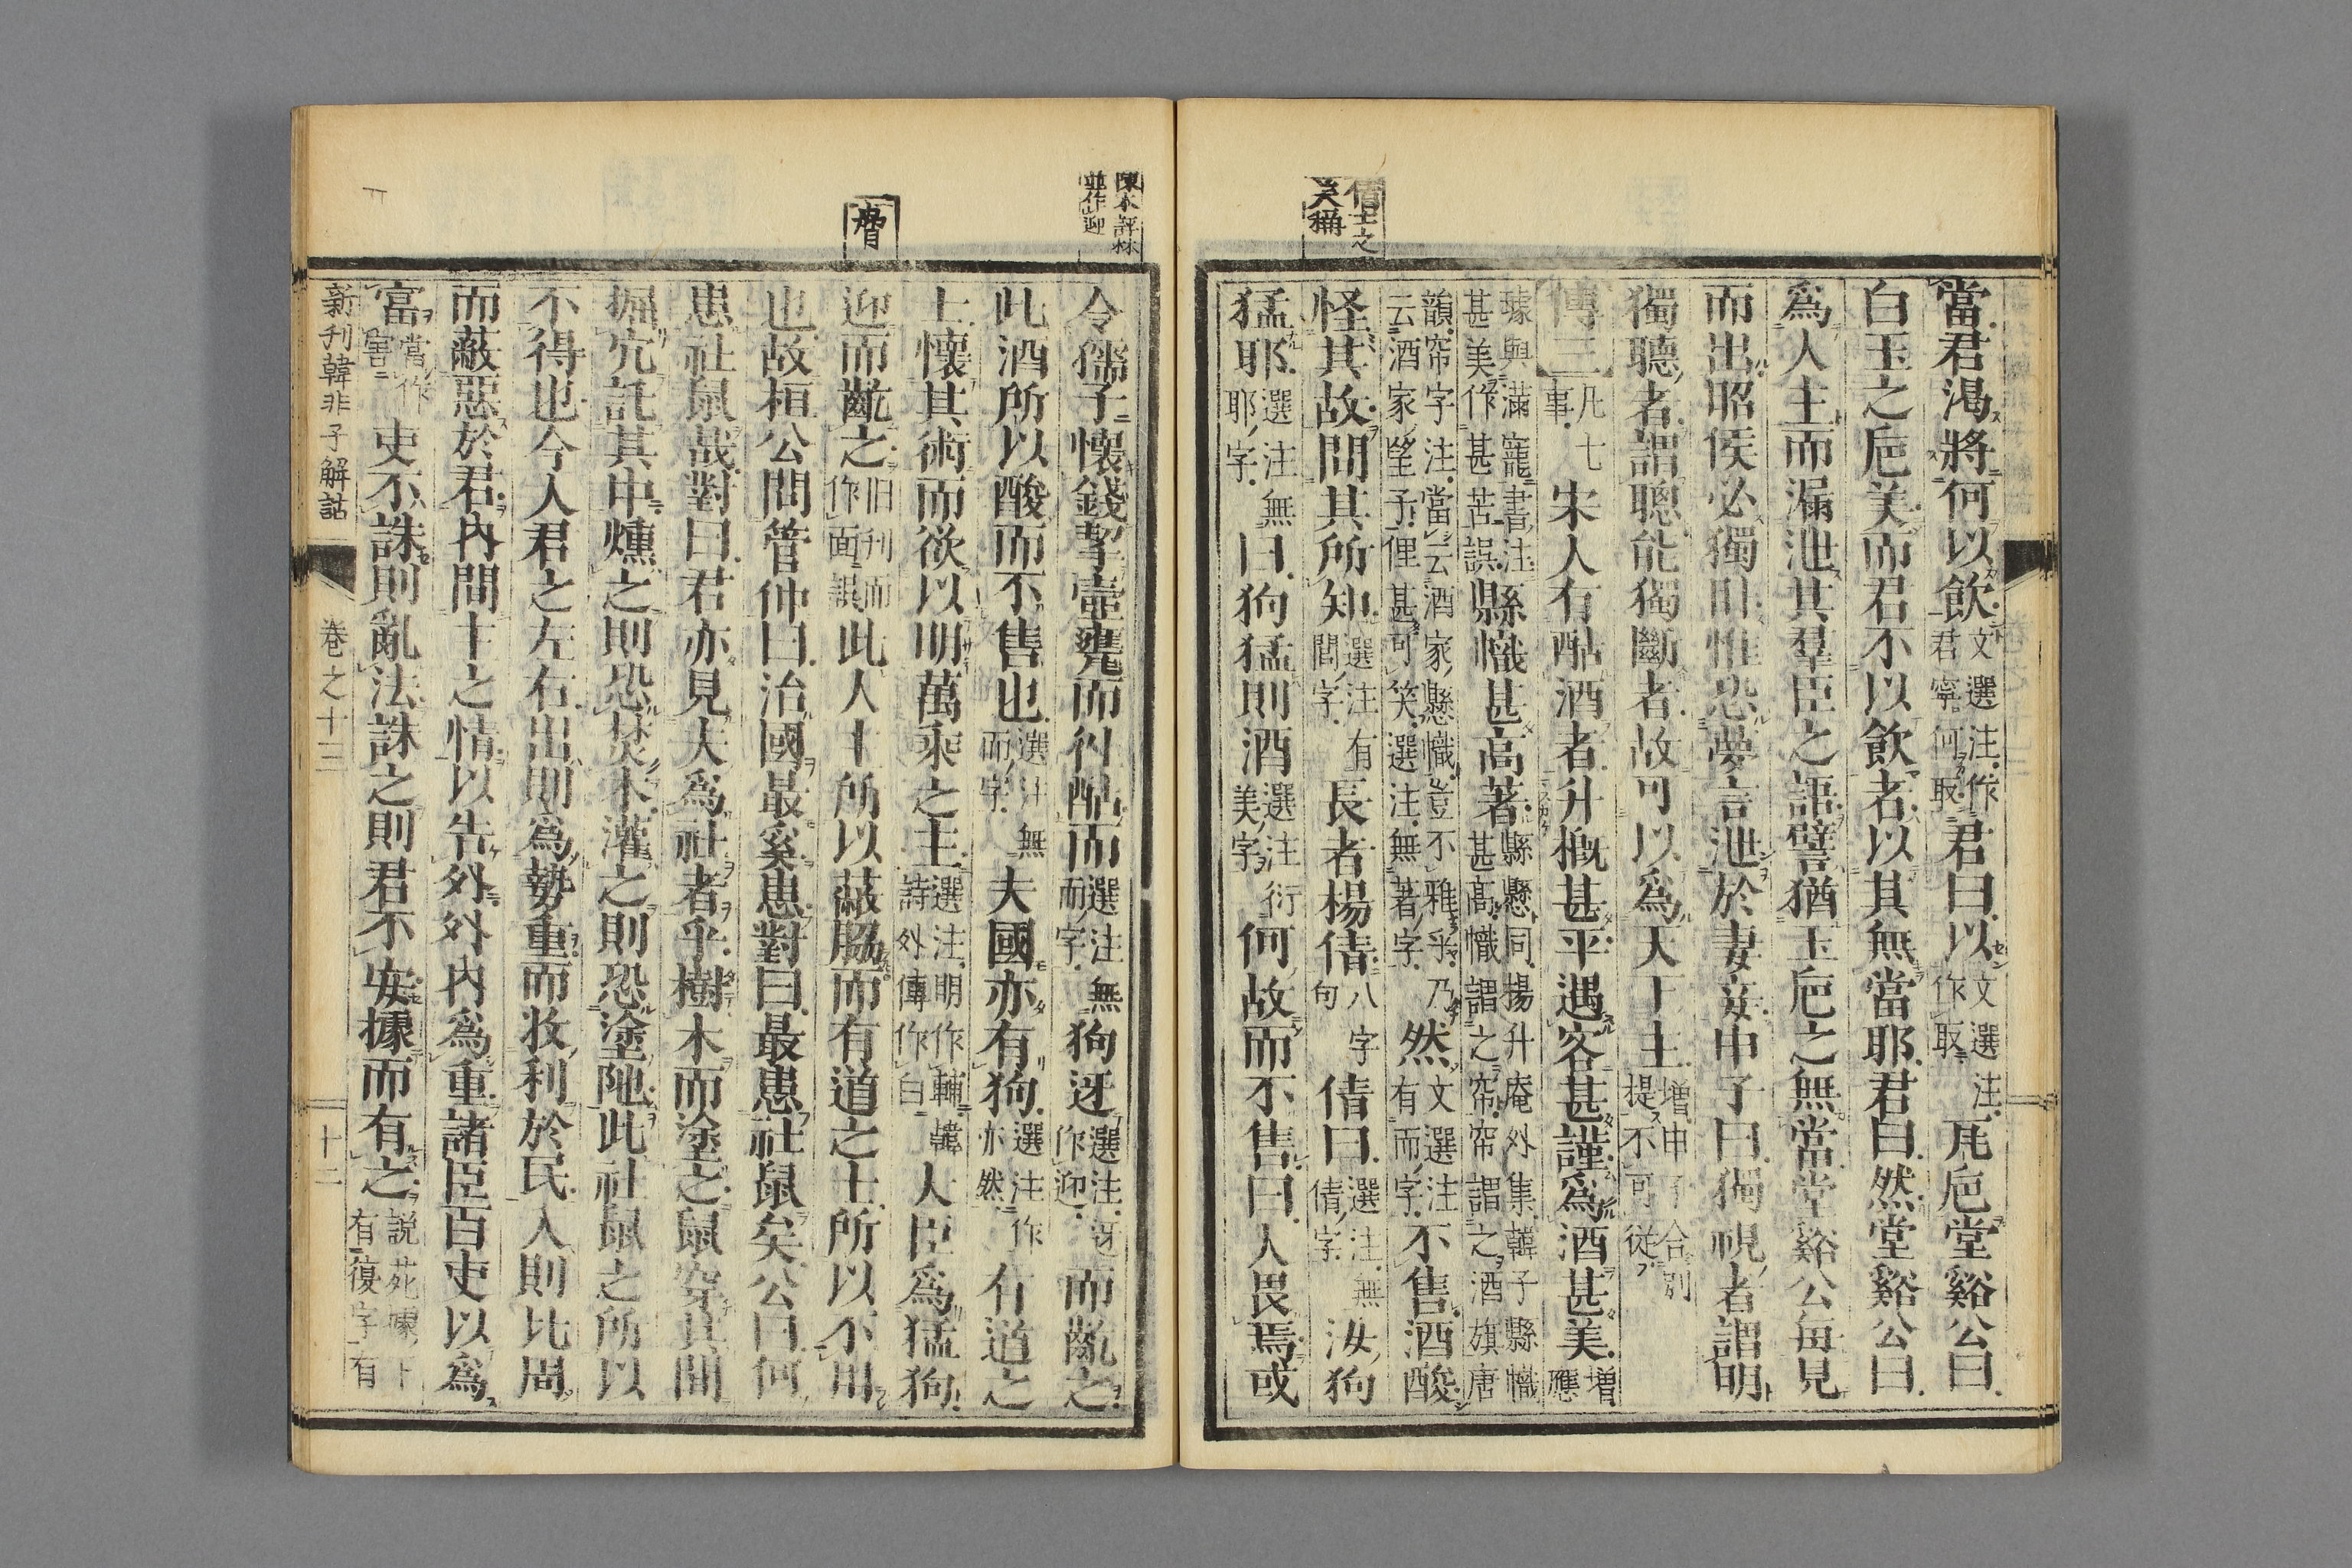 倩士之
美稱
當君渇將何以飲文選注作君寧何取君曰以文選注作取瓦巵堂谿公曰
白玉之巵美而君不以飲者以其無當耶君曰然堂谿公曰
爲人主而漏泄其羣臣之語譬猶玉巵之無當堂谿公毎見
而出昭侯必獨臥惟恐夢言泄於妻妾申子曰獨視者謂明
獨聽者謂聰能獨斷者故可以爲天下主增申子合別提不可從
傳三凡七事宋人有酤酒者升概甚平遇客甚謹爲酒甚美增應
據與滿寵書注甚美作甚苦誤縣幟甚高著縣懸同揚升庵外集韓子縣幟甚高幟謂之帘帘謂之酒旗唐
韻帘字注當云酒家懸幟豈不雅乎乃云酒家望子俚甚可笑選注無著字然文選注有而字不售酒酸
怪其故問其所知選注有閭字長者楊倩八字句倩曰選注無倩字汝狗
猛耶選注無耶字曰狗猛則酒選注衍美字何故而不售曰人畏焉或
陳本評林
並作迎
脅
令孺子懷錢挈壺甕而徃酤而選注無而字狗迓選注迓作迎而齕之
此酒所以酸而不售也選注無而字夫國亦有狗選注作亦然有道之
士懷其術而欲以明萬乘之主選注明作輔韓詩外傳作白大臣爲猛狗
迎而齕之旧刊而作面誤此人主所以蔽脇而有道之士所以不用
也故桓公問管仲曰治國最奚患對曰最患社鼠矣公曰何
患社鼠哉對曰君亦見夫爲社者乎樹木而塗之鼠穿其間
掘穴託其中燻之則恐焚木灌之則恐塗阤此社鼠之所以
不得也今人君之左右出則爲勢重而收利於民入則比周
而蔽惡於君內間主之情以告外外內爲重諸臣百吏以爲
富當作害吏不誅則亂法誅之則君不安據而有之説苑據下有復字有
新刊韓非子解詁
卷之十三
十二